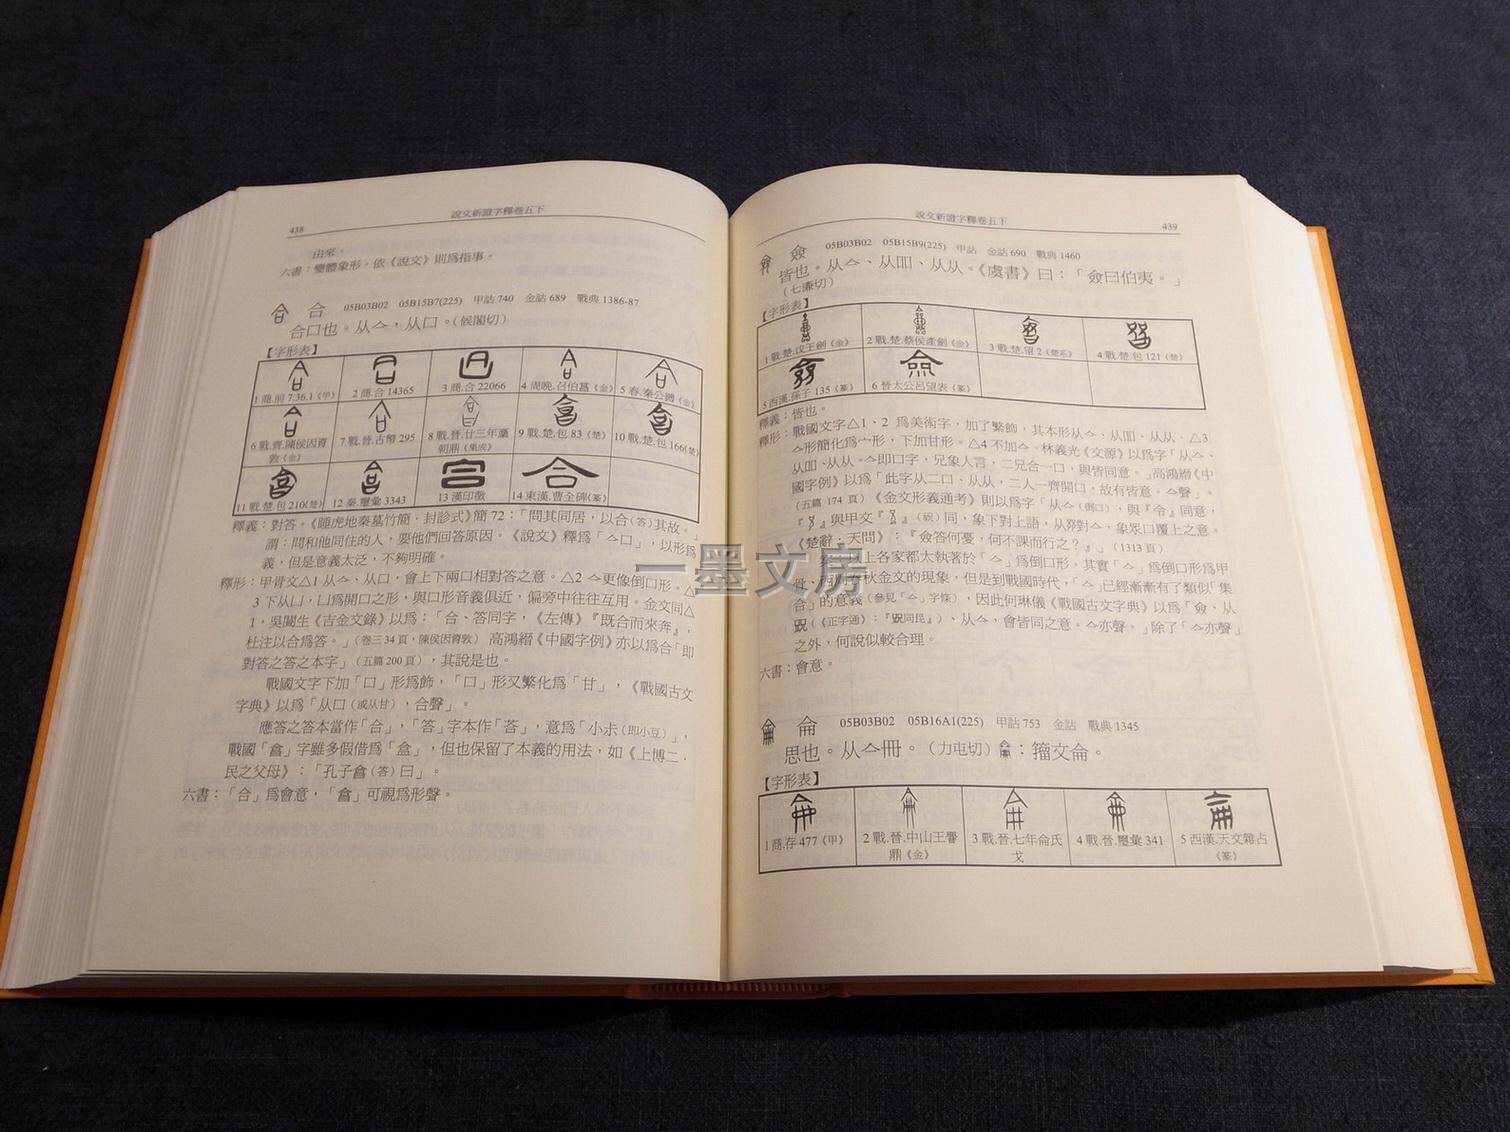 438
說文新證字釋卷五下
由來。
六書：變體象形。依《說文》則為指事。
合 05B03B02 05B15B7(225) 甲詁 740 金詁 689 戰典 1386-87
合口也。从亼，从口。（候閤切）
【字形表】
1 商.前 7.36.1《甲》
2 商.合 14365
3 商.合 22066
4 周晚.召伯簋《金》
5 春.秦公鎛《金》
6 戰.齊.陳侯因𬁼敦《金》
7 戰.晉.古幣 295
8 戰.晉.廿三年襄朝鼎《集成》
9 戰.楚.包 83《楚》
10 戰.楚.包 166《楚》
11 戰.楚.包 210《楚》
12 秦.璽彙 3343
13 漢印徵
14 東漢.曹全碑《篆》
釋義：對答。《睡虎地秦墓竹簡．封診式》簡 72：「問其同居，以合(答)其故。」
謂：問和他同住的人，要他們回答原因。《說文》釋為「亼口」，以形為
義，但是意義太泛，不夠明確。
釋形：甲骨文△1 从亼、从口，會上下兩口相對答之意。△2 亼更像倒口形。△
3 下从凵，凵為開口之形，與口形音義俱近，偏旁中往往互用。金文同△
1，吳闓生《吉金文錄》以為：「合、答同字，《左傳》『既合而來奔』，
杜注以合為答。」（卷三 34 頁，陳侯因𬁼敦）高鴻縉《中國字例》亦以為合「即
對答之答之本字」（五篇 200 頁），其說是也。
戰國文字下加「口」形為飾，「口」形又繁化為「甘」，《戰國古文
字典》以為「从口(或从甘)，合聲」。
應答之答本當作「合」，「答」字本作「荅」，意為「小尗(即小豆)」，
戰國「盒」字雖多假借為「盒」，但也保留了本義的用法，如《上博二．
民之父母》：「孔子(答)曰」。
六書：「合」為會意，「」可視為形聲。
說文新證字釋卷五下
439
僉 05B03B02 05B15B9(225) 甲詁 金詁 690 戰典 1460
皆也。从亼、从吅、从从。《虞書》曰：「僉曰伯夷。」
（七廉切）
【字形表】
1 戰.楚.戉王劍《金》
2 戰.楚.蔡侯產劍《金》
3 戰.楚.望 2《楚系》
4 戰.楚.包 121《楚》
5 西漢.孫子 135《篆》
6 晉太公呂望表《篆》
釋義：皆也。
釋形：戰國文字△1、2 為美術字，加了繁飾，其本形从亼、从吅、从从。△3
亼形簡化為宀形，下加甘形。△4 不加亼。林義光《文源》以為字「从亼、
从吅、从从。亼即口字，兄象人言，二兄合一口，與皆同意。」高鴻縉《中
國字例》以為「此字从二口、从从，二人一齊開口，故有皆意。亼聲」。
（五篇 174 頁）《金文形義通考》則以為字「从亼(倒口)，與『令』同意，
『』與甲文『』(祝)同，象下對上語，从對亼，象眾口覆上之意。
《楚辭．天問》：『僉答何憂，何不課而行之？』」（1313 頁）
案：以上各家都太執著於「亼」為倒口形。其實「亼」為倒口形為甲
骨、西周春秋金文的現象，但是到戰國時代，「亼」已經漸漸有了類似「集
合」的意義（參見「亼」字條），因此何琳儀《戰國古文字典》以為「僉，从
（《正字通》：『同民』）、从亼，會皆同之意。亼亦聲。」除了「亼亦聲」
之外，何說似較合理。
六書：會意。
侖 05B03B02 05B16A1(225) 甲詁 753 金詁 戰典 1345
思也。从亼冊。（力屯切）：籀文侖。
【字形表】
1 商.存 477《甲》
2 戰.晉.中山王鼎《金》
3 戰.晉.七年侖氏戈
4 戰.晉.璽彙 341
5 西漢.天文雜占《篆》
一墨文房